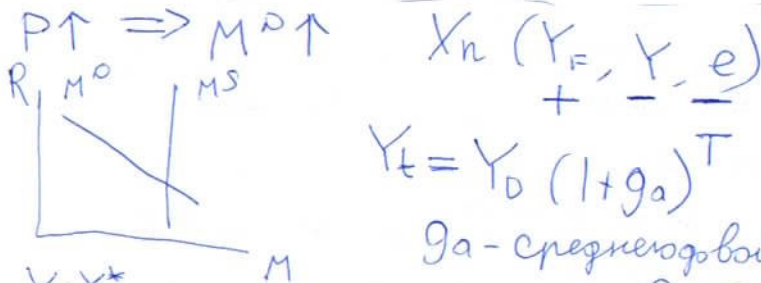 P↑ ⇒ M^D↑
R M^D M^S
M
Xn (Y_F, Y, e)
+ − −
Y_t = Y_0 (1+ga)^T
ga - среднегодовой